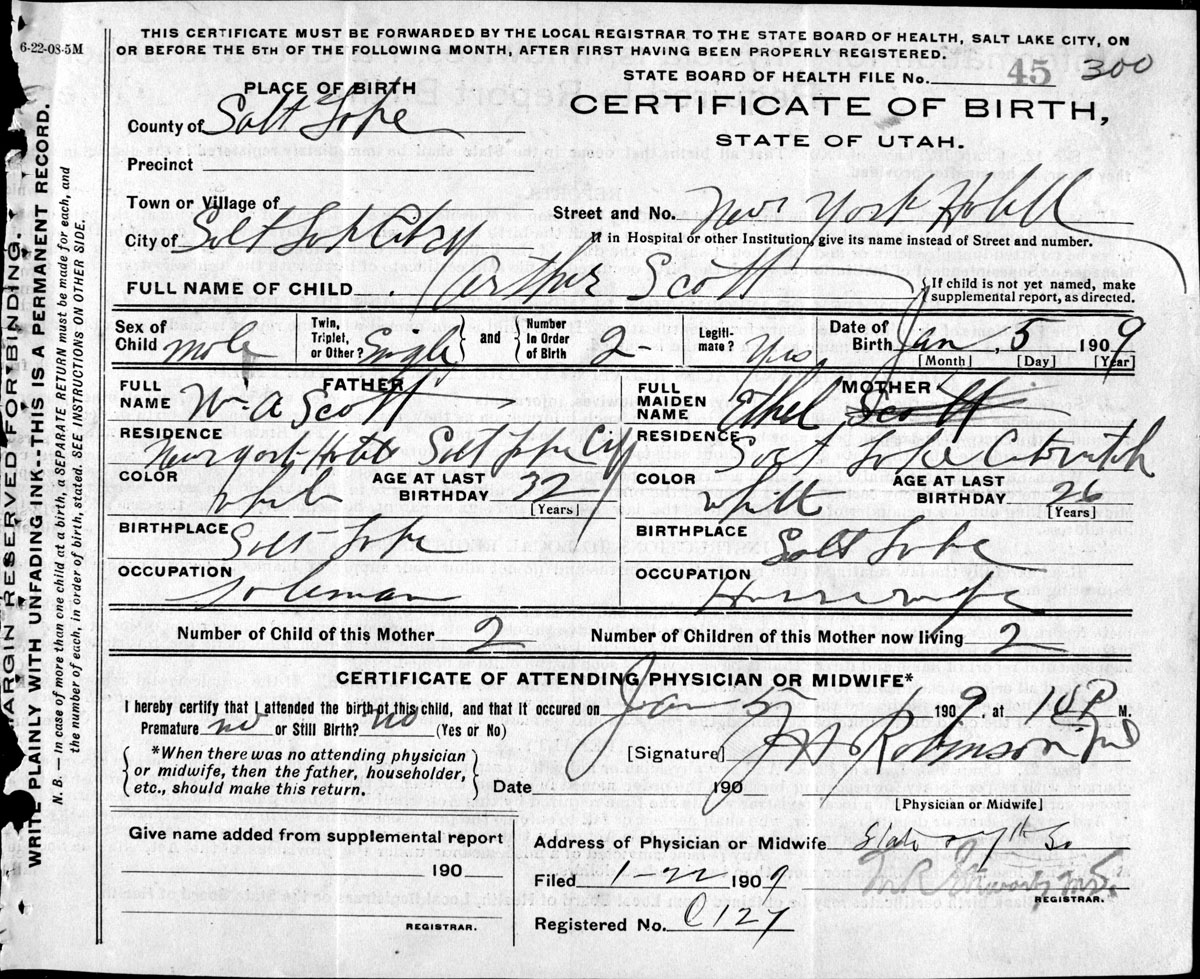 6-22-08-5M
THIS CERTIFICATE MUST BE FORWARDED BY THE LOCAL REGISTRAR TO THE STATE BOARD OF HEALTH, SALT LAKE CITY, ON
OR BEFORE THE 5TH OF THE FOLLOWING MONTH, AFTER FIRST HAVING BEEN PROPERLY REGISTERED.
STATE BOARD OF HEALTH FILE No. 45 300
PLACE OF BIRTH
CERTIFICATE OF BIRTH,
STATE OF UTAH.
County of Salt Lake
Precinct
Town or Village of
Street and No. New York Hotel
City of Salt Lake City
If in Hospital or other Institution, give its name instead of Street and number.
FULL NAME OF CHILD Arthur Scott
{If child is not yet named, make supplemental report, as directed.
Sex of Child Male Twin, Triplet, or Other? Single } and { Number in Order of Birth 2 Legitimate? Yes Date of Birth Jan, 5 1909
[Month] [Day] [Year]
FATHER
FULL NAME Wm A Scott
RESIDENCE New York Hotel Salt Lake City
COLOR White AGE AT LAST BIRTHDAY 32
[Years]
BIRTHPLACE Salt Lake
OCCUPATION
MOTHER
FULL MAIDEN NAME Ethel Scott
RESIDENCE Salt Lake City Utah
COLOR White AGE AT LAST BIRTHDAY 26
[Years]
BIRTHPLACE Salt Lake
OCCUPATION Housewife
Number of Child of this Mother 2 Number of Children of this Mother now living 2
CERTIFICATE OF ATTENDING PHYSICIAN OR MIDWIFE*
I hereby certify that I attended the birth of this child, and that it occured on Jan 5 1909, at 10 P M.
Premature no or Still Birth? no (Yes or No)
{*When there was no attending physician
or midwife, then the father, householder,
etc., should make this return.}
[Signature] Robinson MD
Date 190
[Physician or Midwife]
Give name added from supplemental report
190
REGISTRAR.
Address of Physician or Midwife
Filed 1-22 1909
REGISTRAR.
Registered No. C127
MARGIN RESERVED FOR BINDING
WRITE PLAINLY WITH UNFADING INK--THIS IS A PERMANENT RECORD.
N. B.—In case of more than one child at a birth, a SEPARATE RETURN must be made for each, and
the number of each, in order of birth, stated. SEE INSTRUCTIONS ON OTHER SIDE.